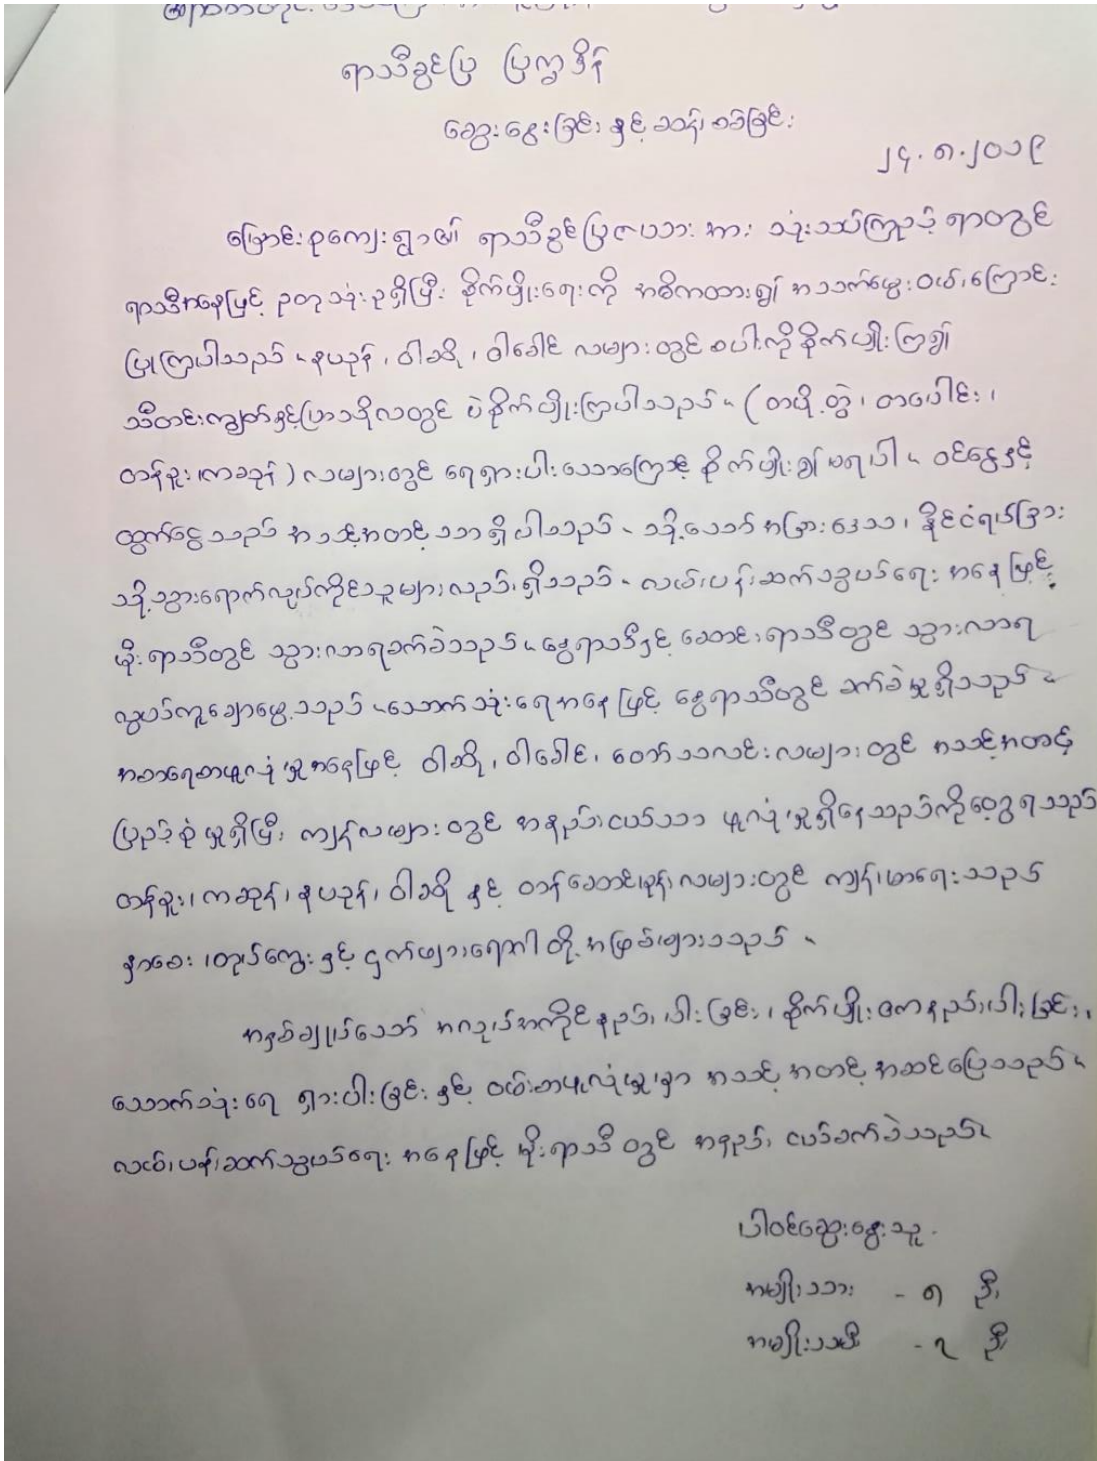 ရာသီခွင်ပြ ပြက္ခဒိန်
ဆွေးနွေးခြင်း နှင့် ဆန်းစစ်ခြင်း
၂၄.၈.၂၀၁၉
မြောင်းစုကျေးရွာ၏ ရာသီခွင်ပြဇယား အား သုံးသပ်ကြည့် ရာတွင်
ရာသီအနေဖြင့် ဥတုသုံးဥရှိပြီး စိုက်ပျိုးရေးကို အဓိကထား၍ အသက်မွေးဝမ်းကြောင်း
ပြုကြပါသည်။ နယုန်၊ ဝါဆို၊ ဝါခေါင် လများတွင် စပါးကိုစိုက်ပျိုးကြ၍
သီတင်းကျွတ်နှင့်ပြာသိုလတွင် ပဲစိုက်ပျိုးကြပါသည်။ (တပို့တွဲ၊ တပေါင်း၊
တန်ခူး၊ကဆုန်) လများတွင် ရေရှားပါးသောကြောင့် စိုက်ပျိုး၍ မရပါ။ ဝင်ငွေနှင့်
ထွက်ငွေသည် အသင့်အတင့်သာရှိပါသည်။ သို့သော် အခြားဒေသ၊ နိုင်ငံရပ်ခြား
သို့သွားရောက်လုပ်ကိုင်သူများလည်းရှိသည်။ လမ်းပန်းဆက်သွယ်ရေး အနေဖြင့်
မိုးရာသီတွင် သွားလာရခက်ခဲသည်။ နွေရာသီနှင့် ဆောင်းရာသီတွင် သွားလာရ
လွယ်ကူချောမွေ့သည်။ သောက်သုံးရေအနေဖြင့် နွေရာသီတွင် ခက်ခဲမှုရှိသည်။
အစားရေစာဖူလုံမှုအနေဖြင့် ဝါဆို၊ ဝါခေါင်၊ တော်သလင်းလများတွင် အသင့်အတင့်
ပြည့်စုံမှုရှိပြီး ကျန်လများတွင် အနည်းငယ်သာ ဖူလုံမှုရှိနေသည်ကိုတွေ့ရသည်
တန်ခူး၊ ကဆုန်၊ နယုန်၊ ဝါဆို နှင့် တန်ဆောင်မုန်းလများတွင် ကျန်းမာရေးသည်
နှာစေး၊ တုပ်ကွေးနှင့် ငှက်ဖျားရောဂါတို့ အဖြစ်များသည်။
အနှစ်ချုပ်သော် အလုပ်အကိုင်နည်းပါးခြင်း၊ စိုက်ပျိုးဧကနည်းပါးခြင်း၊
သောက်သုံးရေ ရှားပါးခြင်း နှင့် ဝမ်းစာဖူလုံမှုမှာ အသင့်အတင့် အဆင်ပြေသည်။
လမ်းပန်းဆက်သွယ်ရေး အနေဖြင့် မိုးရာသီတွင် အနည်းငယ်ခက်ခဲသည်။
ပါဝင်ဆွေးနွေးသူ
အမျိုးသား - ၈ ဦး
အမျိုးသမီး - ၃ ဦး